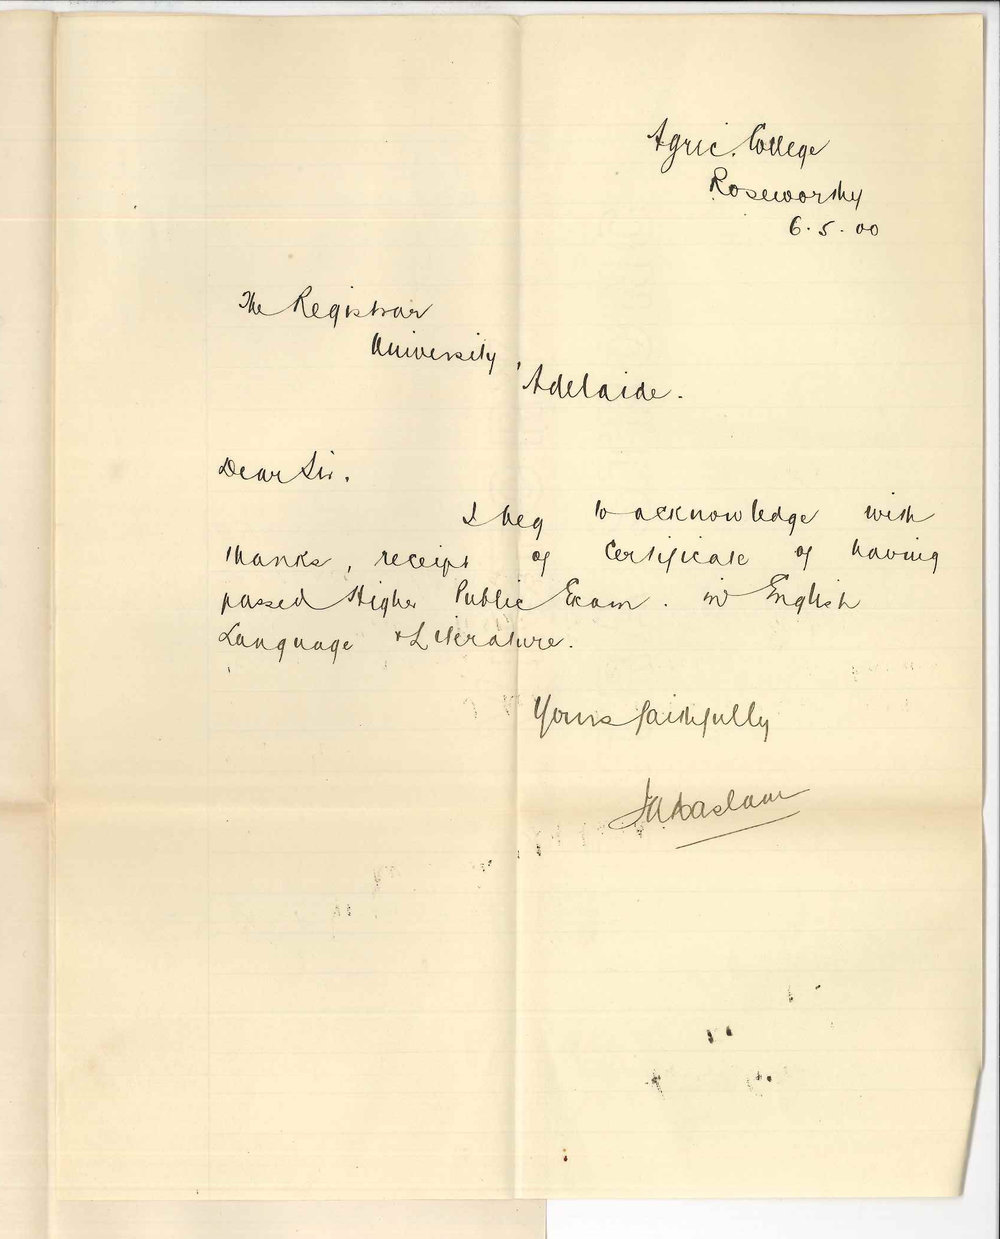 Agric. College
Roseworthy
6.5.00
The Registrar
University,
Adelaide.
Dear Sir.
I beg to acknowledge with
thanks, receipt of Certificate of having
passed Higher Public Exam. in English
Language & Literature.
Yours faithfully
J A Haslam